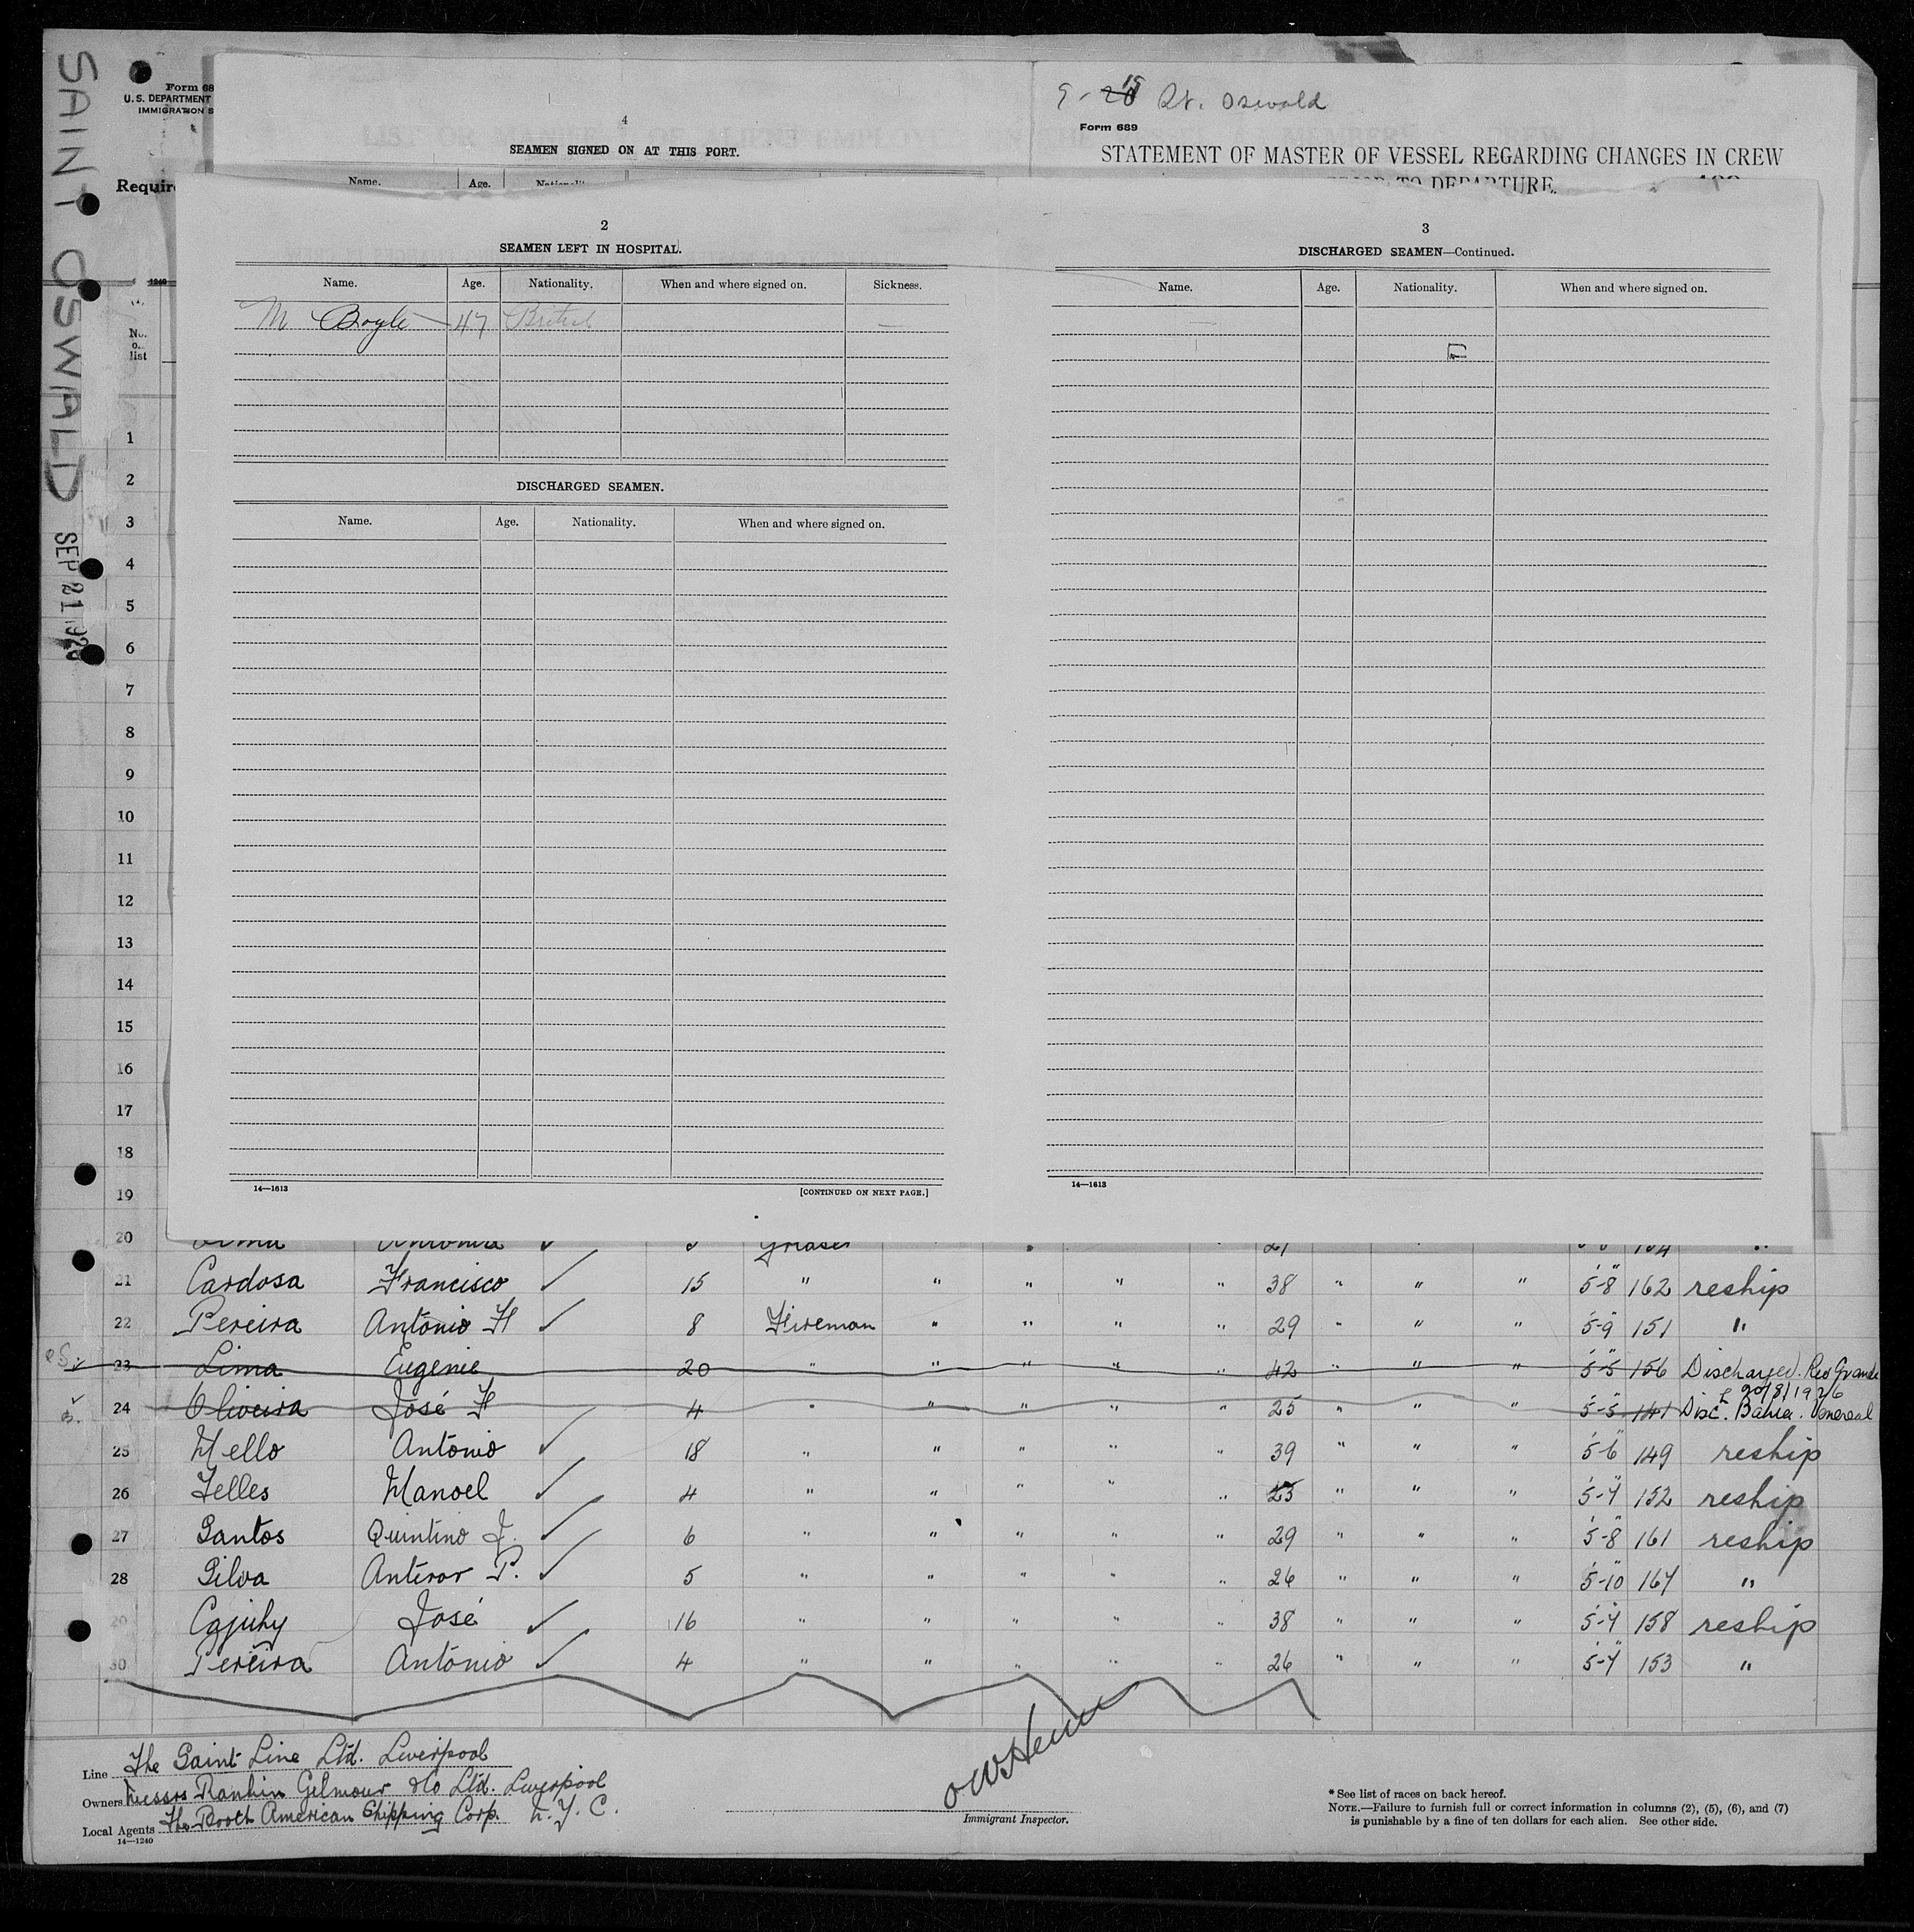 SAINT OSWALD SEP 21 1926
Form 68
U. S. DEPARTMENT
IMMIGRATION S
Requir
4
SEAMEN SIGNED ON AT THIS PORT.
Name. Age.
9-18 St. Oswald
Form 689
STATEMENT OF MASTER OF VESSEL REGARDING CHANGES IN CREW
TO DEPARTURE.
2
SEAMEN LEFT IN HOSPITAL.
Name. Age. Nationality. When and where signed on. Sickness.
M Boyle 47 British —
DISCHARGED SEAMEN.
Name. Age. Nationality. When and where signed on.
14—1613 [CONTINUED ON NEXT PAGE.]
3
DISCHARGED SEAMEN—Continued.
Name. Age. Nationality. When and where signed on.
14—1613
1240
No.
list
1
2
3
4
5
6
7
8
9
10
11
12
13
14
15
16
17
18
19
20 Greaser
21 Cardosa Francisco ✓ 15 " " " " " 38 " " " 5'-8" 162 reship
22 Pereira Antonio H ✓ 8 Fireman " " " " 29 " " " 5'-9" 151 "
23 Lima Eugenie 20 " " " " " 42 " " " 5'-5" 156 Discharged. Rio Grande
20/8/1926
24 Oliveira José H 4 " " " " " 25 " " " 5'-5" 141 Disc. Bahia. Venereal
25 Mello Antonio ✓ 18 " " " " " 39 " " " 5'-6" 149 reship
26 Telles Manoel ✓ 4 " " " " " 25 " " " 5'-7" 152 reship
27 Santos Quintino J. ✓ 6 " " " " " 29 " " " 5'-8" 161 reship
28 Silva Anteror P. ✓ 5 " " " " " 26 " " " 5'-10" 167 "
29 Cajuhy José ✓ 16 " " " " " 38 " " " 5'-7" 158 reship
30 Pereira Antonio ✓ 4 " " " " " 26 " " " 5'-7" 153 "
Line The Saint Line Ltd. Liverpool
Owners Messrs Rankin Gilmour & Co Ltd. Liverpool
Local Agents The Booth American Shipping Corp. N.Y.C.
14—1240
Immigrant Inspector.
* See list of races on back hereof.
NOTE.—Failure to furnish full or correct information in columns (2), (5), (6), and (7)
is punishable by a fine of ten dollars for each alien. See other side.